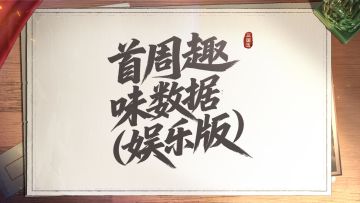 首周趣
味数据
(娱乐版)